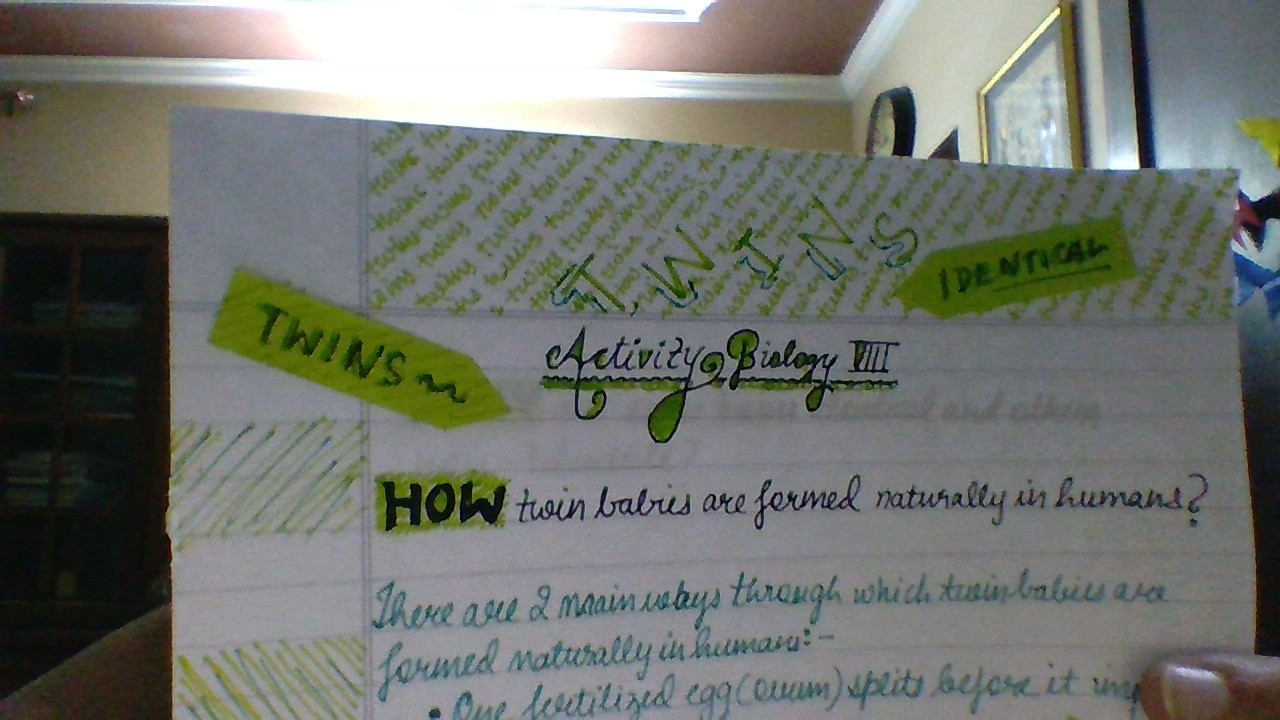 TWINS
IDENTICAL
TWINS
Activity Biology VIII
HOW twin babies are formed naturally in humans?
There are 2 main ways through which twin babies are
formed naturally in humans:-
• One fertilized egg (ovum) splits before it